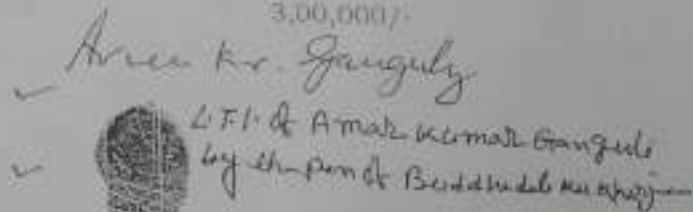 3,00,000/-
Kr. Ganguly
L.T.I. of Amar Kumar Ganguli
by the pen of Buddhadeb Mukherjee